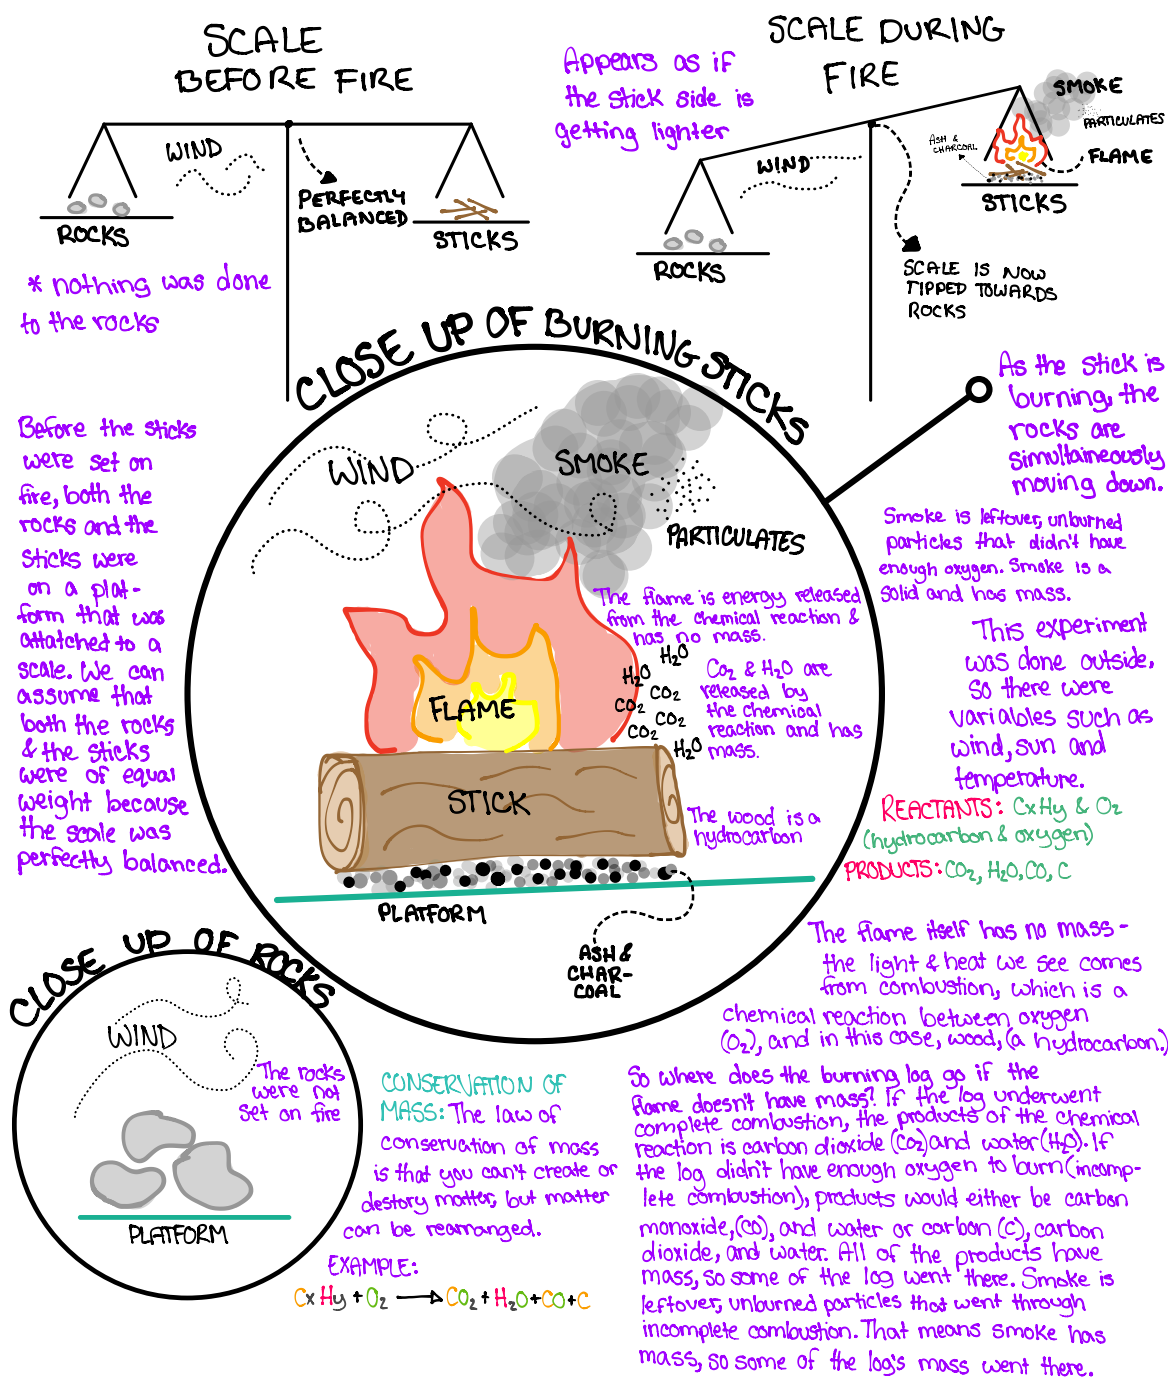 SCALE
BEFORE FIRE
WIND
PERFECTLY
BALANCED
ROCKS
STICKS
* nothing was done
to the rocks
SCALE DURING
FIRE
Appears as if
the stick side is
getting lighter
WIND
ASH &
CHARCOAL
SMOKE
PARTICULATES
FLAME
STICKS
ROCKS
SCALE IS NOW
TIPPED TOWARDS
ROCKS
CLOSE UP OF BURNING STICKS
As the stick is
burning, the
rocks are
simultaineously
moving down.
Before the sticks
were set on
fire, both the
rocks and the
sticks were
on a plat-
form that was
attatched to a
scale. We can
assume that
both the rocks
& the sticks
were of equal
weight because
the scale was
perfectly balanced.
WIND
SMOKE
PARTICULATES
The flame is energy released
from the chemical reaction &
has no mass.
H₂O
H₂O
CO₂
CO₂
CO₂
CO₂
H₂O
CO₂ & H₂O are
released by
the chemical
reaction and has
mass.
FLAME
STICK
The wood is a
hydrocarbon
PLATFORM
ASH &
CHAR-
COAL
Smoke is leftover, unburned
particles that didn't have
enough oxygen. Smoke is a
solid and has mass.
This experiment
was done outside,
so there were
variables such as
wind, sun and
temperature.
REACTANTS: CxHy & O₂
(hydrocarbon & oxygen)
PRODUCTS: CO₂, H₂O, CO, C
The flame itself has no mass -
the light & heat we see comes
from combustion, which is a
chemical reaction between oxygen
(O₂), and in this case, wood, (a hydrocarbon.)
CLOSE UP OF ROCKS
WIND
The rocks
were not
set on fire
PLATFORM
CONSERVATION OF
MASS: The law of
conservation of mass
is that you can't create or
destory matter, but matter
can be rearranged.
EXAMPLE:
CxHy + O₂ → CO₂ + H₂O + CO + C
So where does the burning log go if the
flame doesn't have mass? If the log underwent
complete combustion, the products of the chemical
reaction is carbon dioxide (CO₂) and water (H₂O). If
the log didn't have enough oxygen to burn (incomp-
lete combustion), products would either be carbon
monoxide, (CO), and water or carbon (C), carbon
dioxide, and water. All of the products have
mass, so some of the log went there. Smoke is
leftover, unburned particles that went through
incomplete combustion. That means smoke has
mass, so some of the log's mass went there.